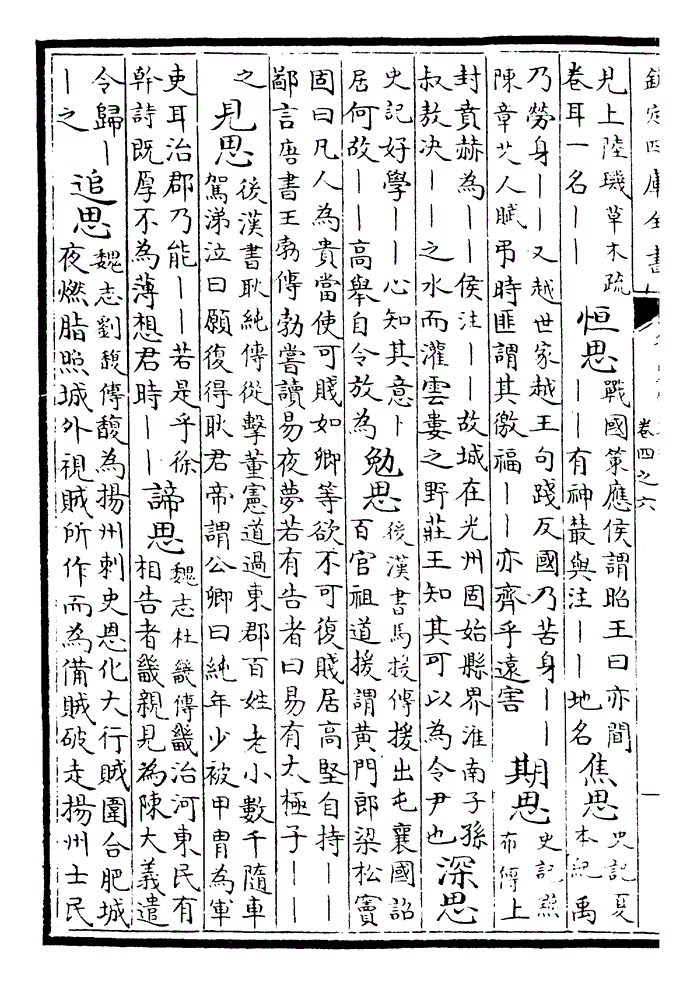 欽定四庫全書
卷四之六
見上陸璣草木疏
卷耳一名｜｜
恒思
戰國策應侯謂昭王曰亦聞
｜｜有神叢與注｜｜地名
焦思
史記夏
本紀禹
乃勞身｜｜又越世家越王句踐反國乃苦身｜｜
陳章艾人賦弔時匪謂其徼福｜｜亦齊乎遠害
期思
史記黥
布傳上
封賁赫為｜｜侯注｜｜故城在光州固始縣界淮南子孫
叔敖决｜｜之水而灌雲婁之野莊王知其可以為令尹也
深思
史記好學｜｜心知其意｜
居何故｜｜高舉自令放為
勉思
後漢書馬援傳援出屯襄國詔
百官祖道援謂黃門郎梁松竇
固曰凡人為貴當使可賤如卿等欲不可復賤居高堅自持｜｜
鄙言唐書王勃傳勃嘗讀易夜夢若有告者曰易有太極子｜｜
之
見思
後漢書耿純傳從擊董憲道過東郡百姓老小數千隨車
駕涕泣曰願復得耿君帝謂公卿曰純年少被甲冑為軍
吏耳治郡乃能｜｜若是乎徐
幹詩既厚不為薄想君時｜｜
諦思
魏志杜畿傳畿治河東民有
相告者畿親見為陳大義遣
令歸｜
｜之
追思
魏志劉馥傳馥為揚州刺史恩化大行賊圍合肥城
夜燃脂照城外視賊所作而為備賊破走揚州士民